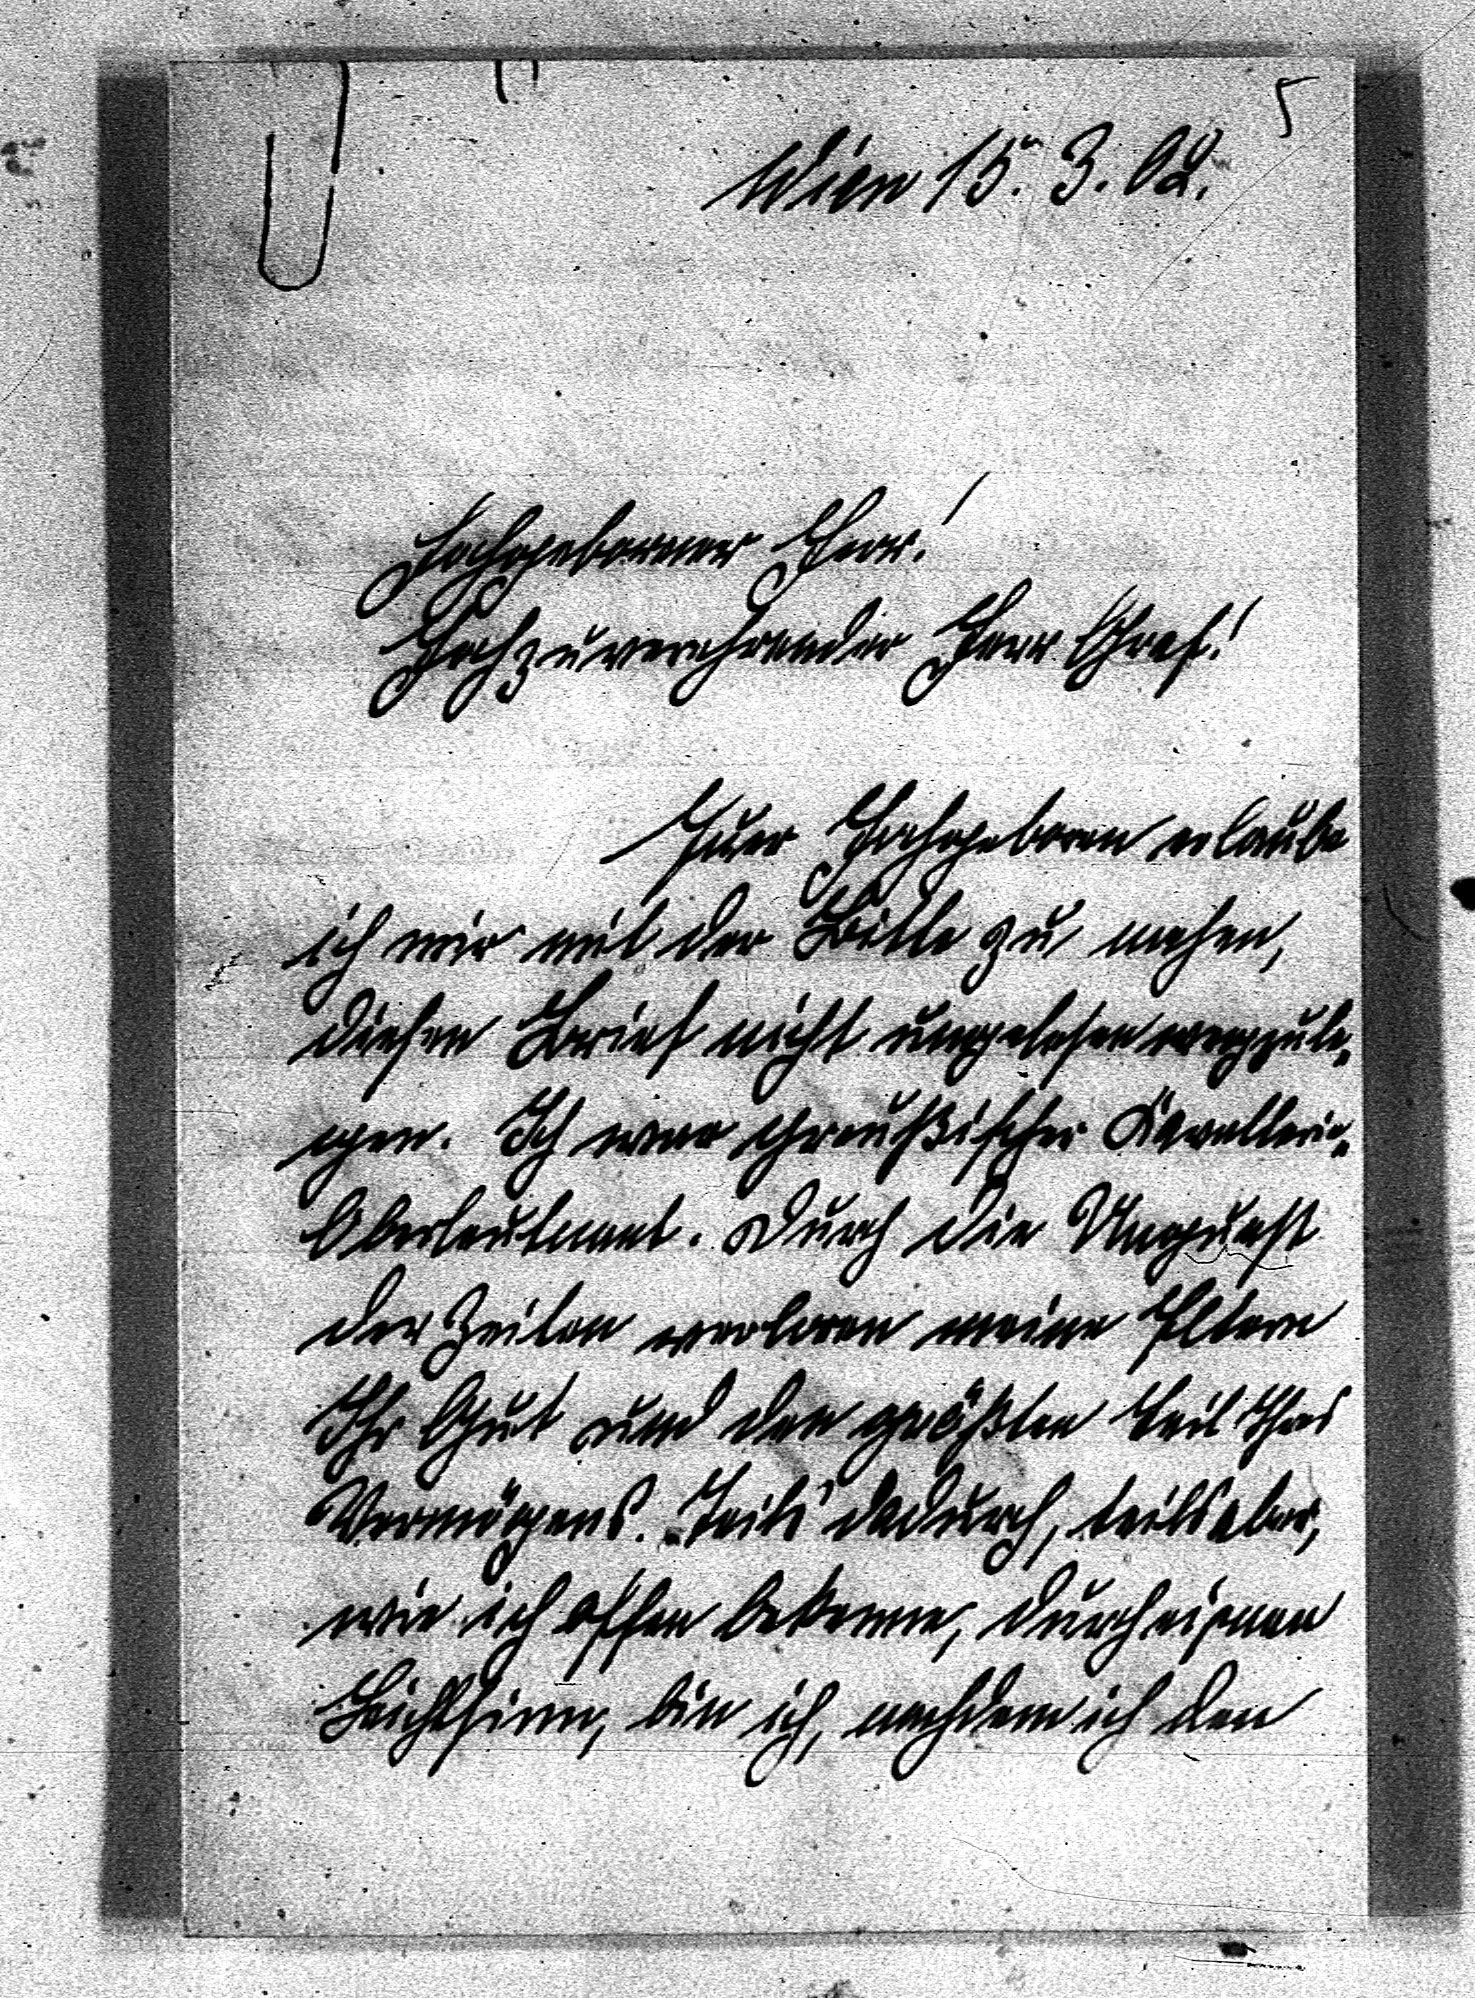 5
Wien 15. 3. 02.
Hochgeborner Herr!
Hochzuverehrender Herr Graf!
Euer Hochgeboren erlaube
ich mir mit der Bitte zu nahen,
diesen Brief nicht ungelesen wegzule-
gen. Ich war preußischer Kavallerie-
Oberleutnant. Durch die Ungunst
der Zeiten verloren meine Eltern
Ihr Gut und den größten Teil Ihres
Vermögens. Teils dadurch, teils aber,
wie ich offen bekenne, durch eignen
Leichtsinn, bin ich, nachdem ich den